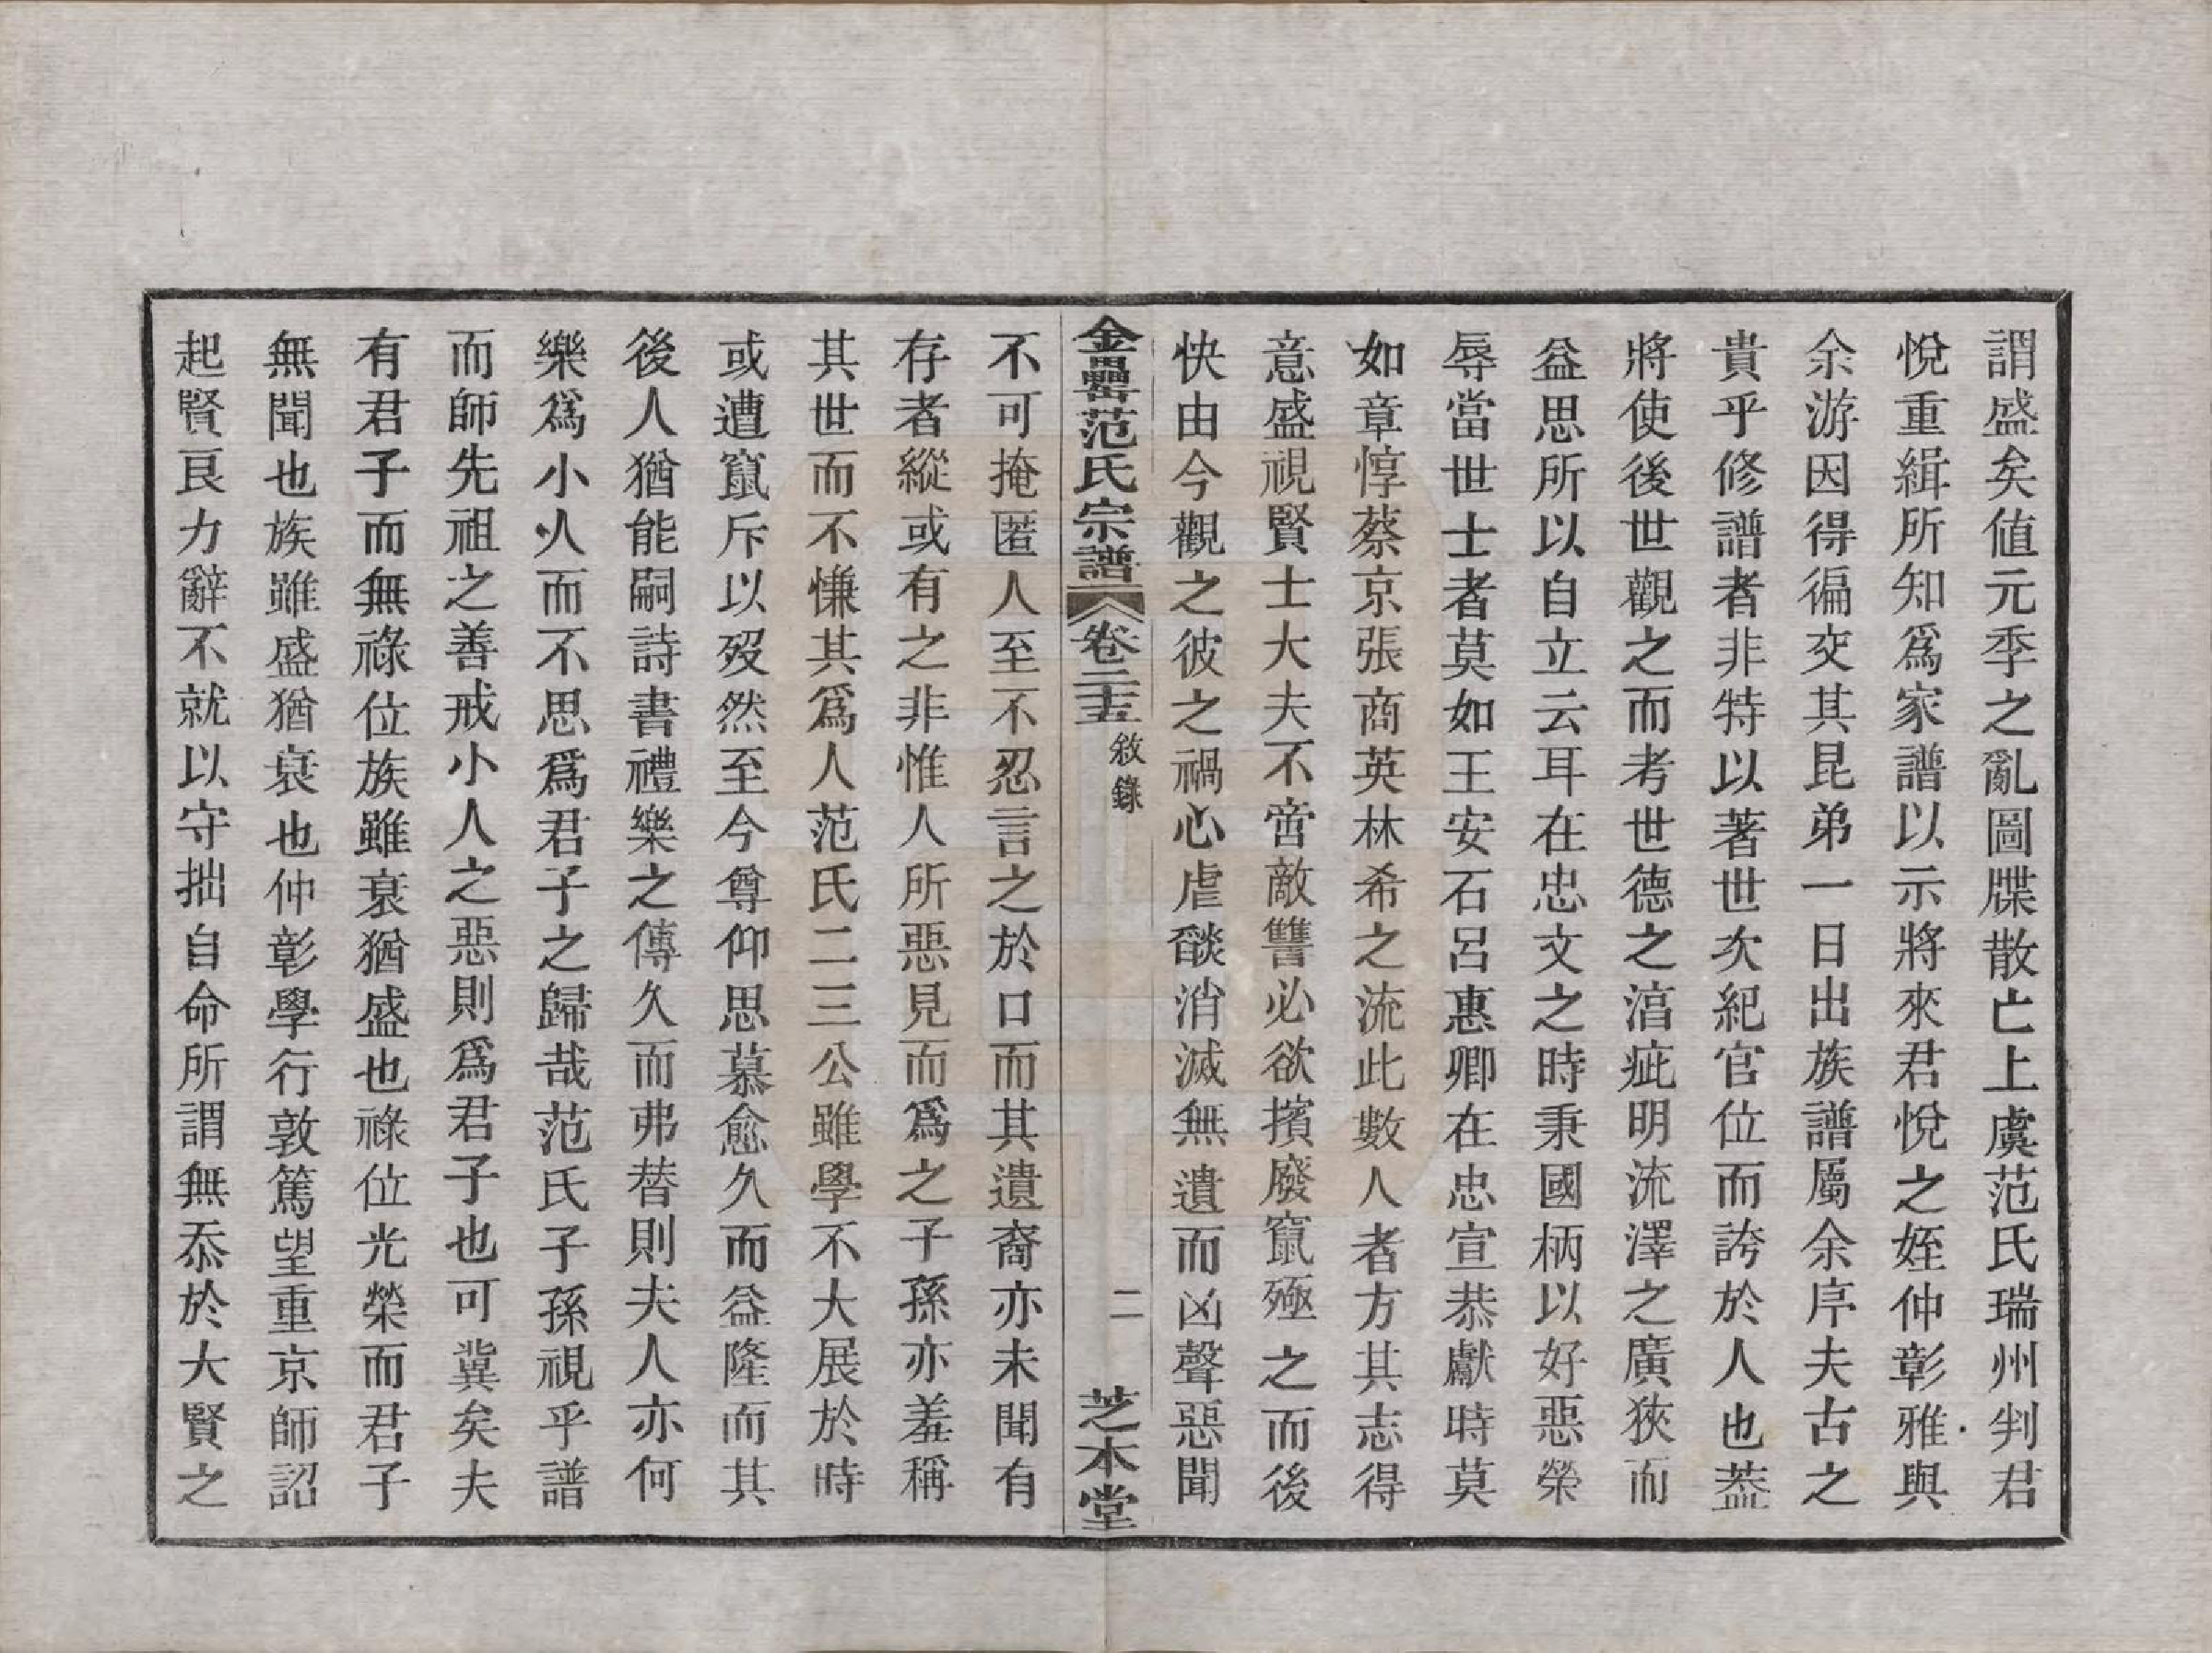 謂盛矣値元季之亂圖牒散亡上虞范氏瑞州判君
悅重緝所知爲家譜以示將來君悅之姪仲彰雅與
余游因得徧交其昆弟一日出族譜屬余序夫古之
貴乎修譜者非特以著世次紀官位而誇於人也葢
將使後世觀之而考世德之淯疵明流澤之廣狹而
益思所以自立云耳在忠文之時秉國柄以好惡榮
辱當世士者莫如王安石呂惠卿在忠宣恭獻時莫
如章惇蔡京張商英林希之流此數人者方其志得
意盛視賢士大夫不啻敵讐必欲擯廢竄殛之而後
快由今觀之彼之禍心虐燄消滅無遺而凶聲惡聞
金罍范氏宗譜 卷二十五 敘錄 二 芝本堂
不可掩匿人至不忍言之於口而其遺裔亦未聞有
存者縱或有之非惟人所惡見而爲之子孫亦羞稱
其世而不慊其爲人范氏二三公雖學不大展於時
或遭竄斥以歿然至今尊仰思慕愈久而益隆而其
後人猶能嗣詩書禮樂之傳久而弗替則夫人亦何
樂爲小人而不思爲君子之歸哉范氏子孫視乎譜
而師先祖之善戒小人之惡則爲君子也可冀矣夫
有君子而無祿位族雖衰猶盛也祿位光榮而君子
無聞也族雖盛猶衰也仲彰學行敦篤望重京師詔
起賢良力辭不就以守拙自命所謂無忝於大賢之